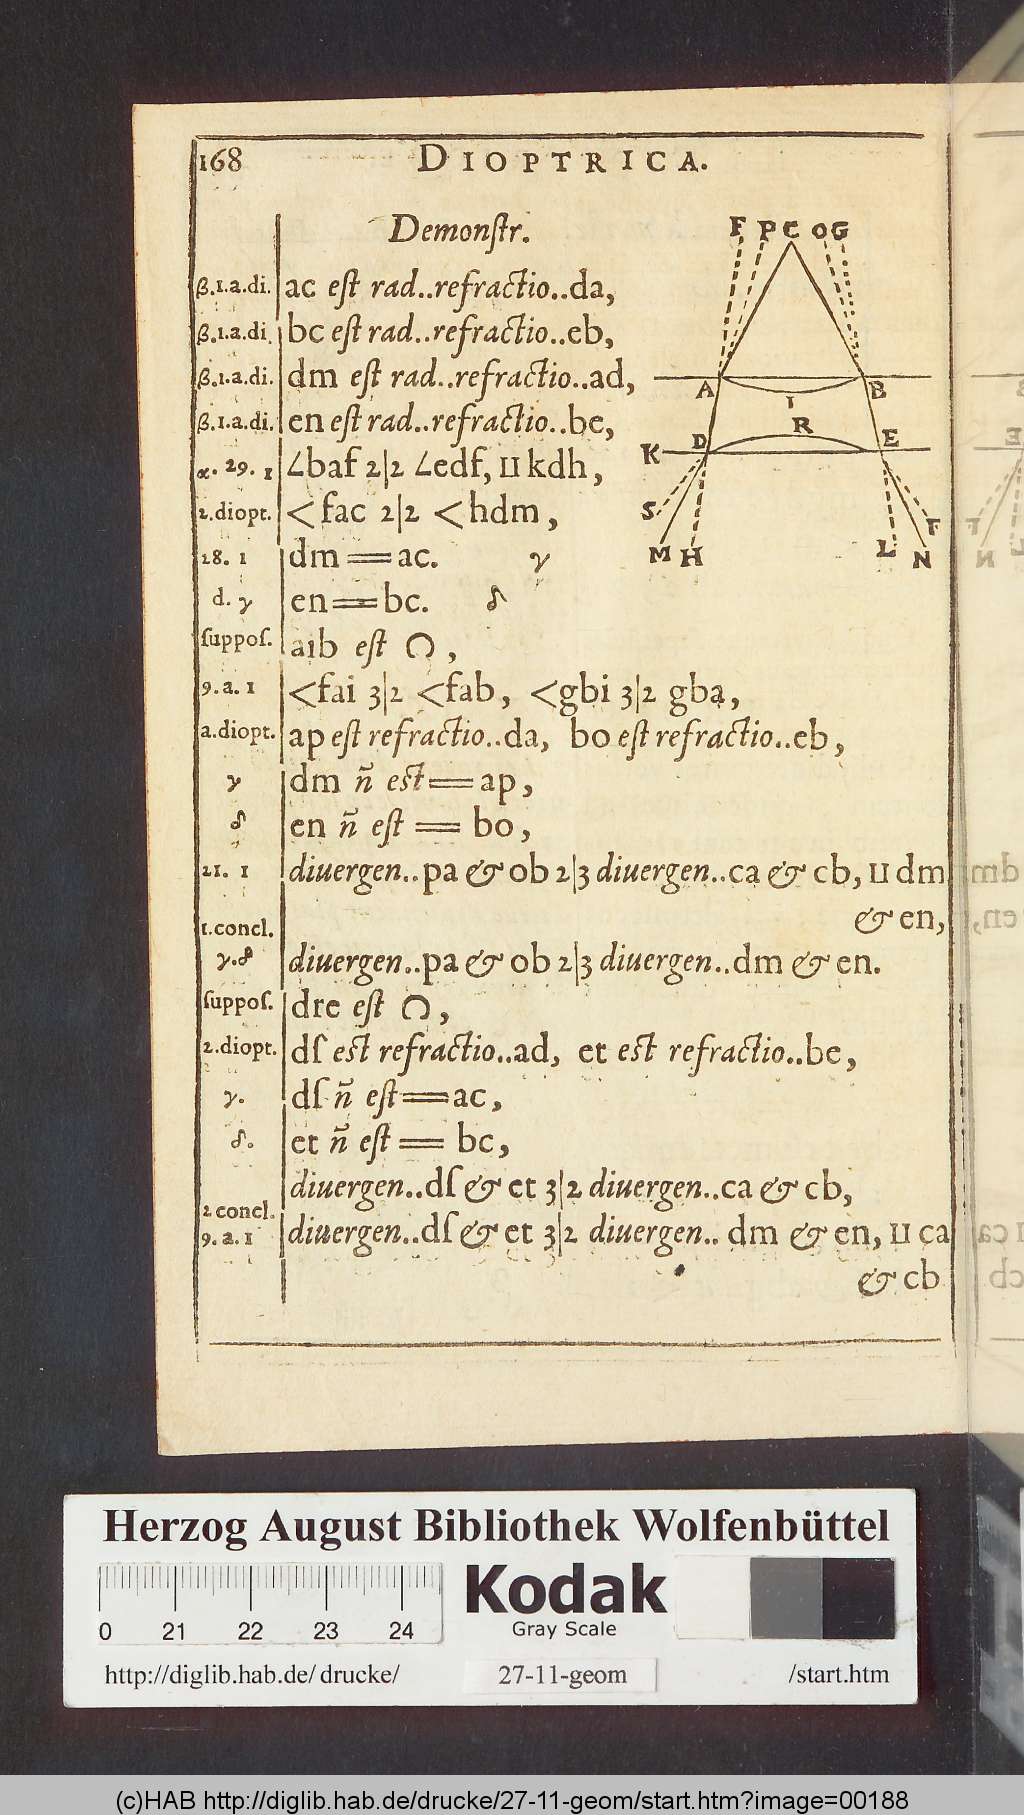 168 DIOPTRICA.
Demonſtr.
F P C O G
β.1.a.di. ac eſt rad..refractio..da,
β.1.a.di. bc eſt rad..refractio..eb,
β.1.a.di. dm eſt rad..refractio..ad,
A B
I
β.1.a.di. en eſt rad..refractio..be,
R
K D E
α. 29. 1 ∠baf 2|2 ∠edf, II kdh,
2.diopt. <fac 2|2 <hdm,
S F
28. 1 dm == ac. γ
M H L N
d. γ en == bc. δ
ſuppoſ. aib eſt ᑎ,
9.a.1 <fai 3|2 <fab, <gbi 3|2 gba,
a.diopt. ap eſt refractio..da, bo eſt refractio..eb,
γ dm ñ eſt == ap,
δ en ñ eſt == bo,
21. 1 diuergen..pa & ob 2|3 diuergen..ca & cb, II dm
& en,
1.concl.
γ.δ diuergen..pa & ob 2|3 diuergen..dm & en.
ſuppoſ. dre eſt ᑎ,
2.diopt. dſ eſt refractio..ad, et eſt refractio..be,
γ. dſ ñ eſt == ac,
δ. et ñ eſt == bc,
diuergen..dſ & et 3|2 diuergen..ca & cb,
2 concl.
9.a.1 diuergen..dſ & et 3|2 diuergen.. dm & en, II ca
& cb
Herzog August Bibliothek Wolfenbüttel
0 21 22 23 24
Kodak
Gray Scale
http://diglib.hab.de/drucke/ 27-11-geom /start.htm
(c)HAB http://diglib.hab.de/drucke/27-11-geom/start.htm?image=00188